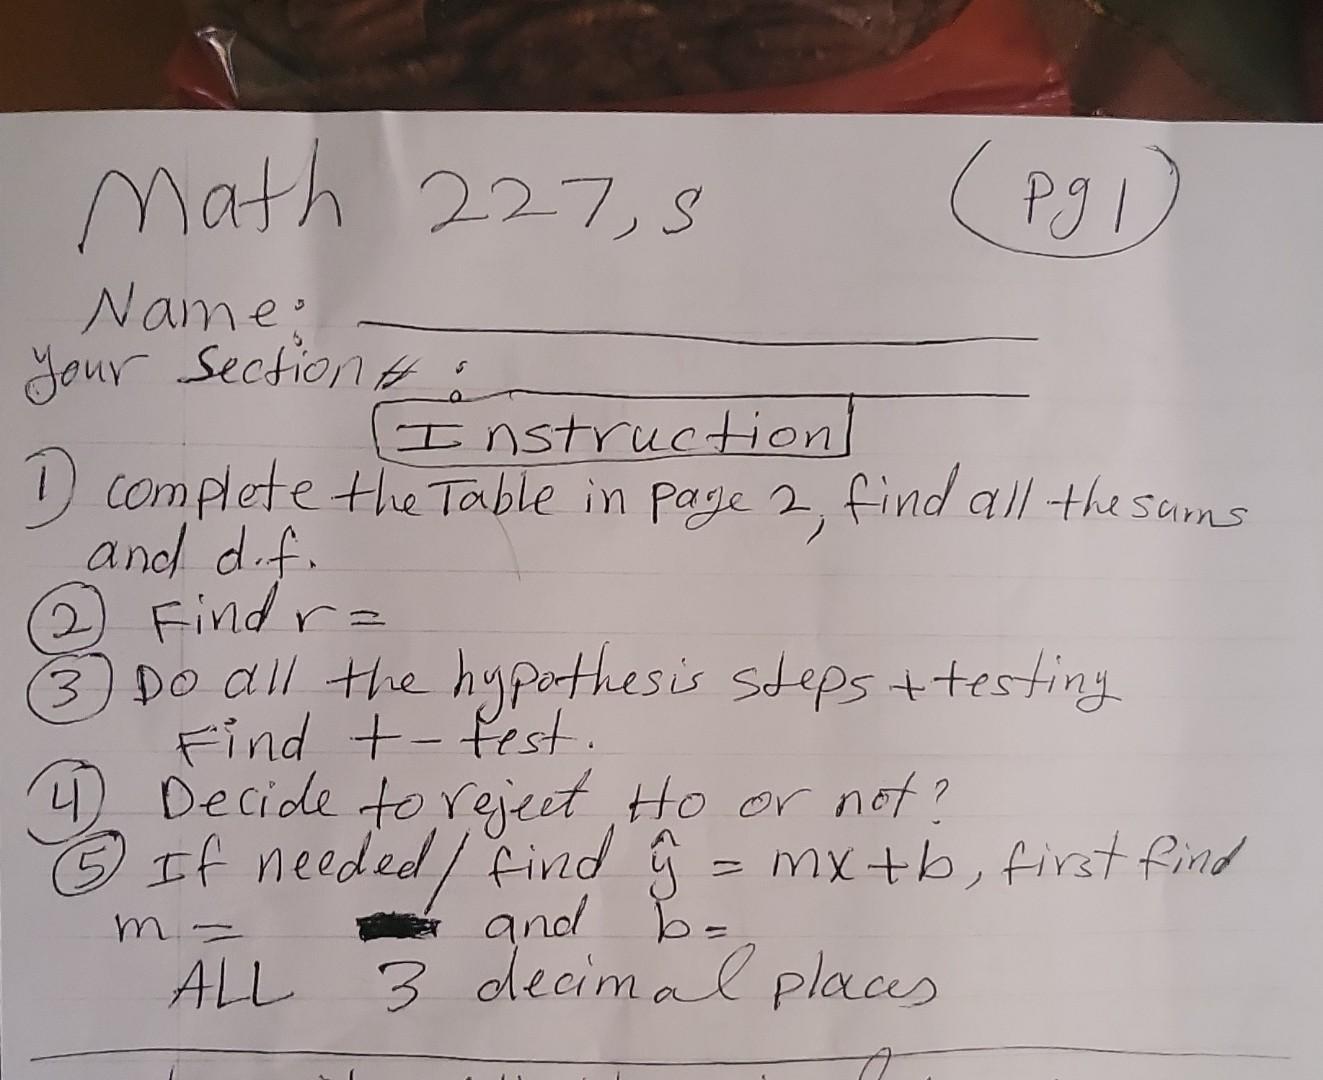 Math 227, s
(pg 1)
Name:
Your Section # :
Instruction
1) complete the Table in page 2, find all the sums
and d.f.
② Find r =
③ Do all the hypothesis steps + testing
Find t - test.
④ Decide to reject Ho or not?
⑤ If needed / find ŷ = mx + b, first find
m = and b =
ALL 3 decimal places